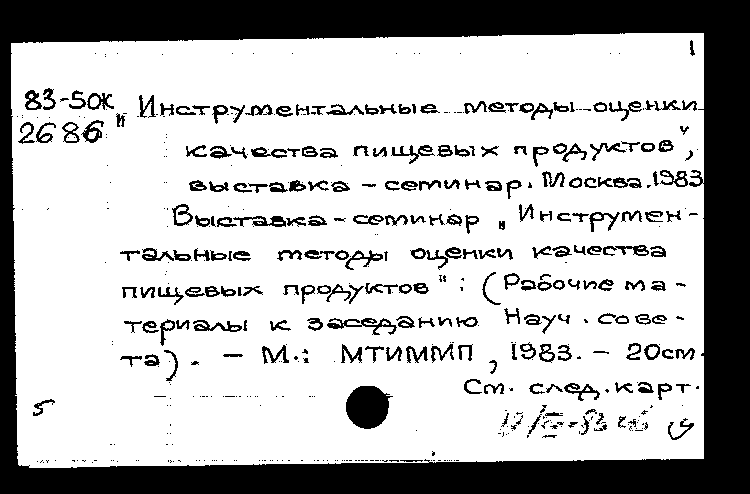 1
83-5ОК „Инструментальные методы оценки
2686 качества пищевых продуктов",
выставка – семинар. Москва. 1983
Выставка – семинар „Инструмен-
тальные методы оценки качества
пищевых продуктов": (Рабочие ма-
териалы к заседанию Науч. сове-
та). – М.: МТИММП, 1983. – 20см.
См. след. карт.
5